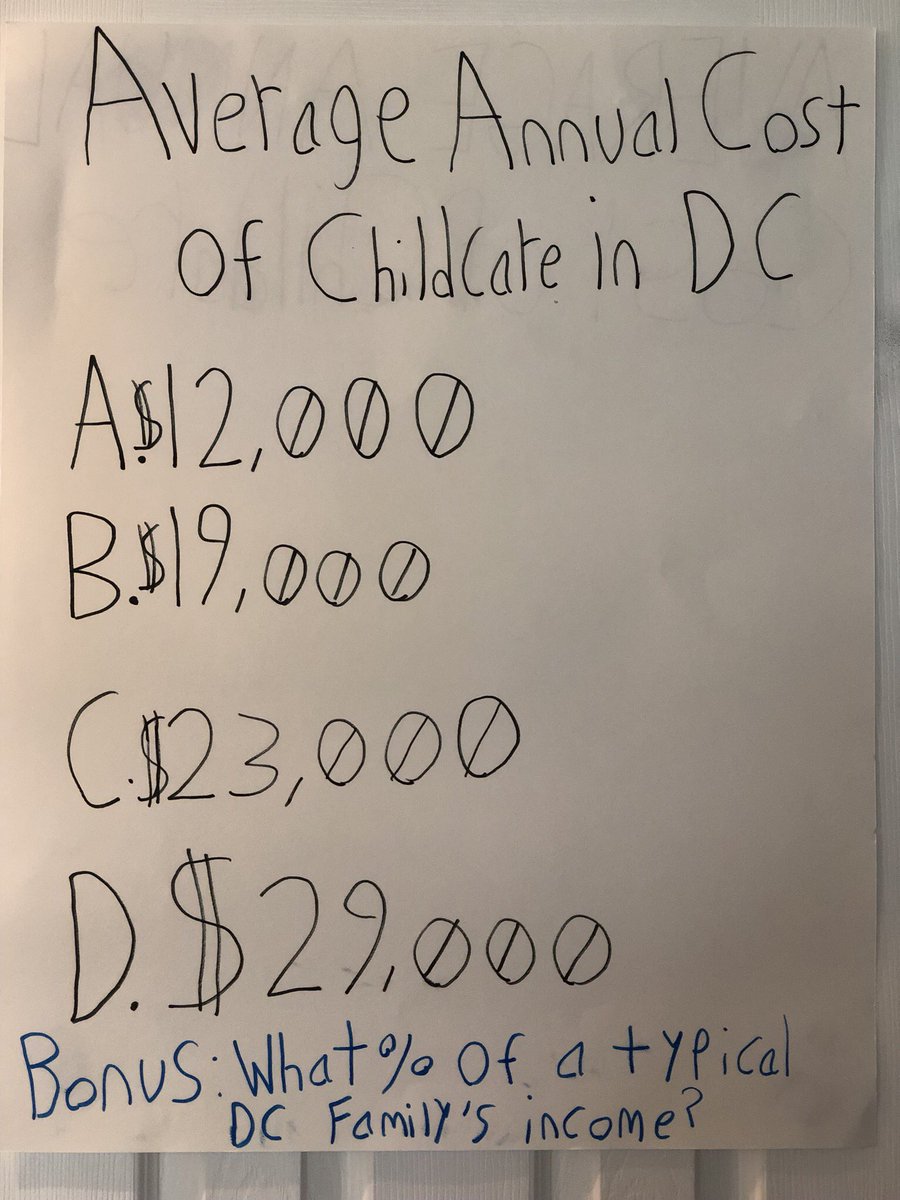 Average Annual Cost
Of Childcare in DC
A.$12,000
B.$19,000
C.$23,000
D.$29,000
Bonus: What % of a typical
DC Family's income?